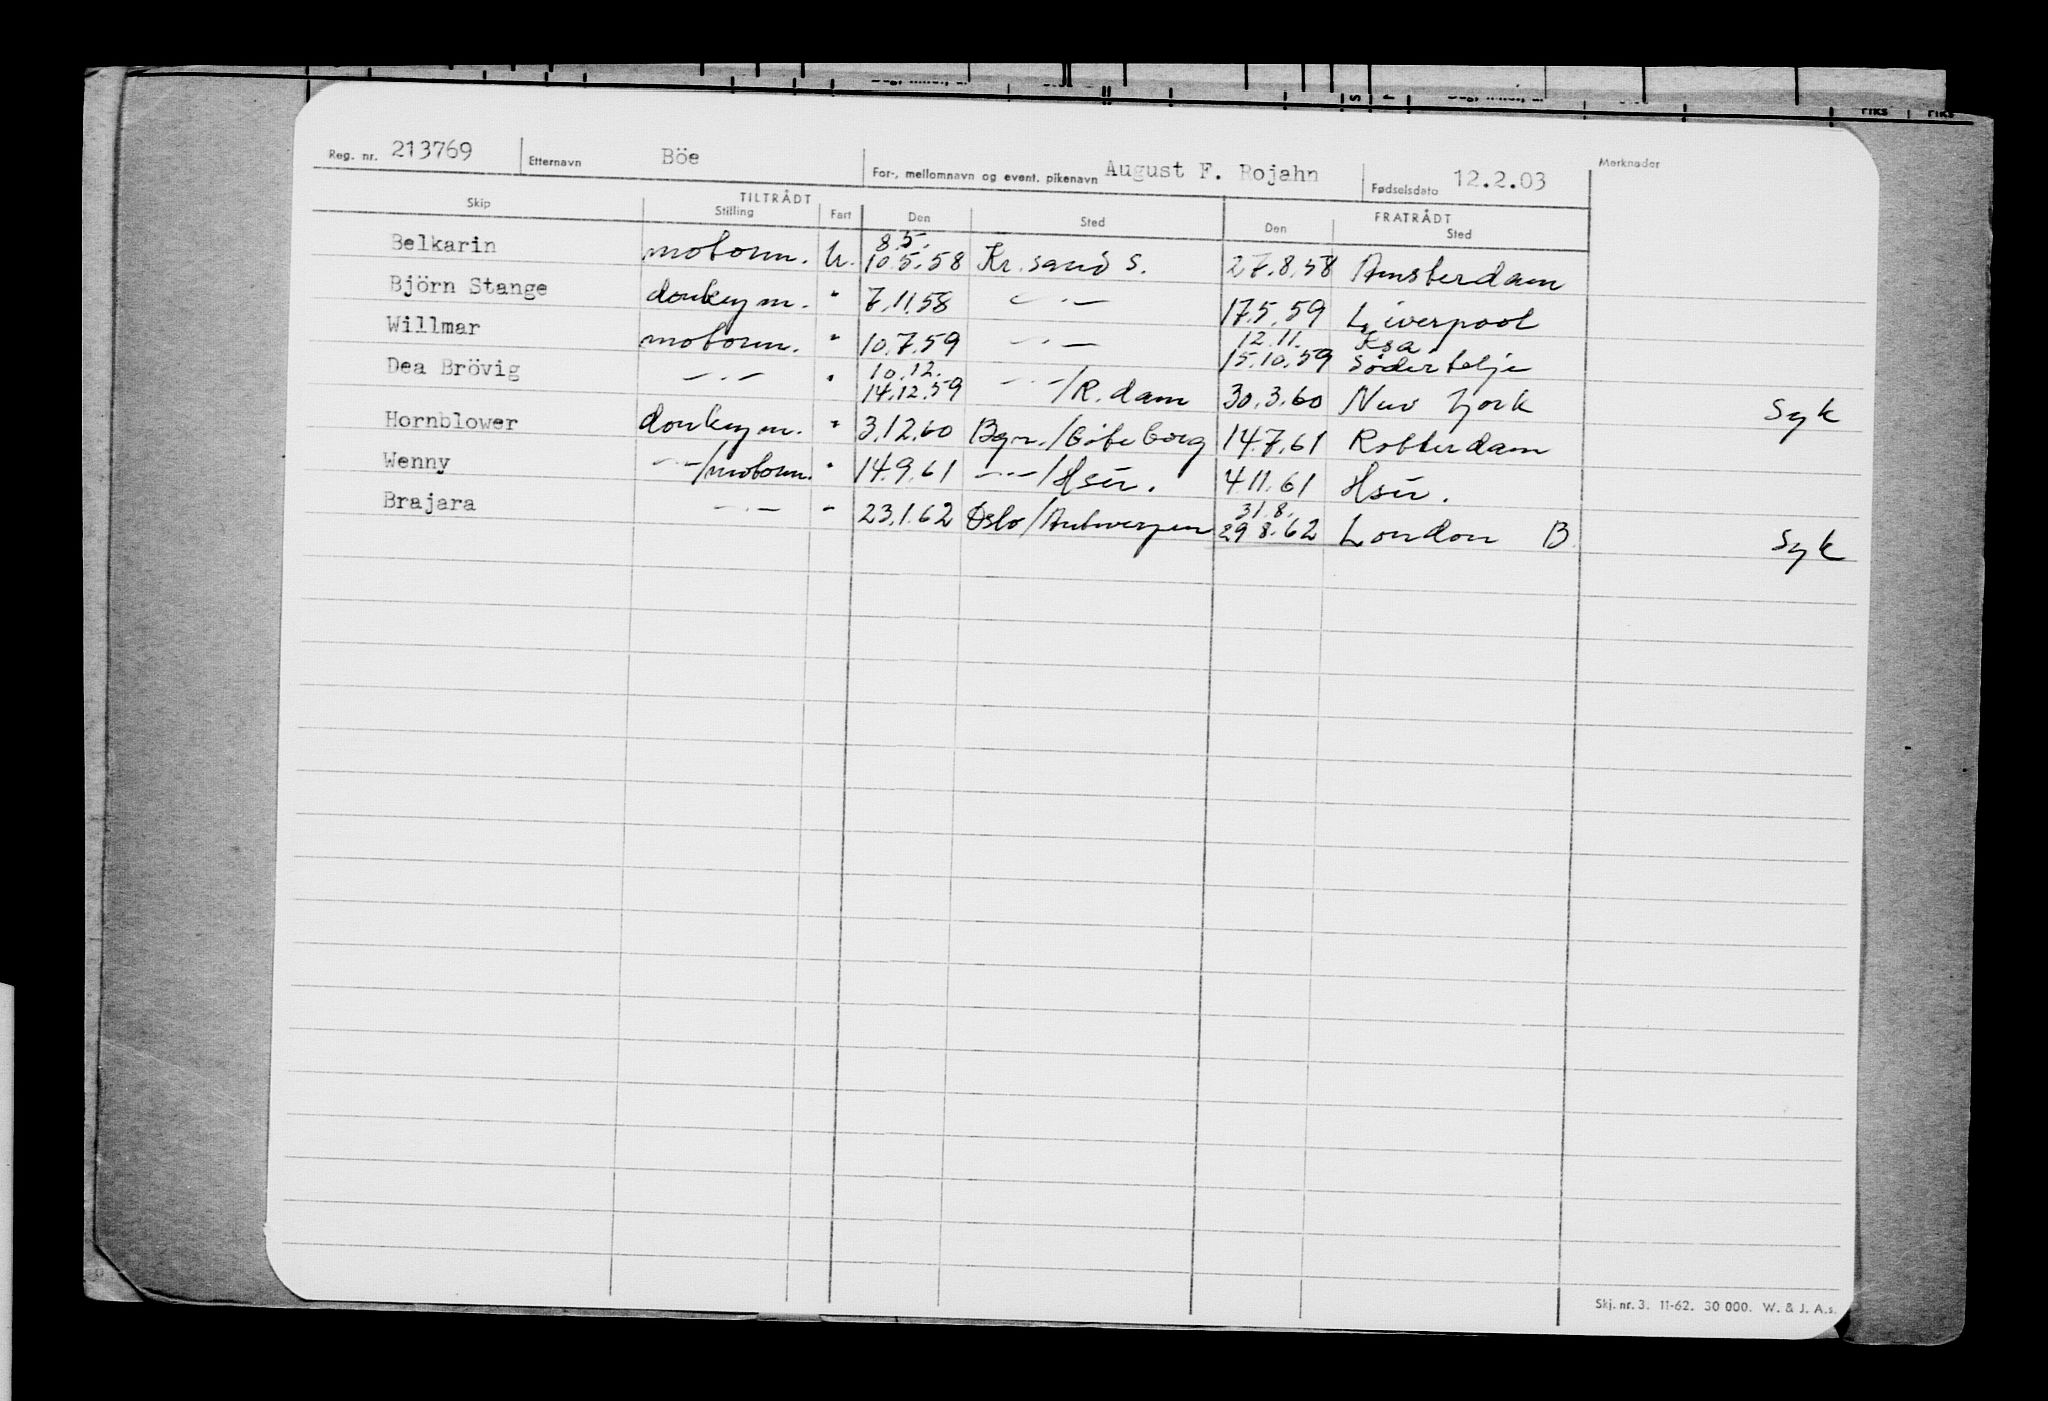 Reg. nr. 213769 Etternavn Böe For-, mellomnavn og event. pikenavn August F. Rojahn Fødselsdato 12.2.03 Merknader
TILTRÅDT FRATRÅDT
Skip Stilling Fart Den Sted Den Sted
8.5.
Belkarin motorm. U. 10.5.58 Kr.sand S. 27.8.58 Amsterdam
Björn Stange donkeym. " 7.11.58 -"- 17.5.59 Liverpool
12.11. Ksa
Willmar motorm. " 10.7.59 -"- 15.10.59 Södertelje
10.12.
Dea Brövig -"- " 14.12.59 -"-/R.dam 30.3.60 New York Syk
Hornblower donkeym. " 3.12.60 Bgn./Göteborg 14.7.61 Rotterdam
Wenny -"-/motorm. " 14.9.61 -"-/Hsu. 4.11.61 Hsu.
31.8.
Brajara -"- " 23.1.62 Oslo/Antwerpen 29.8.62 London B Syk
Skj. nr. 3. 11-62. 30 000. W. & J. A.s.